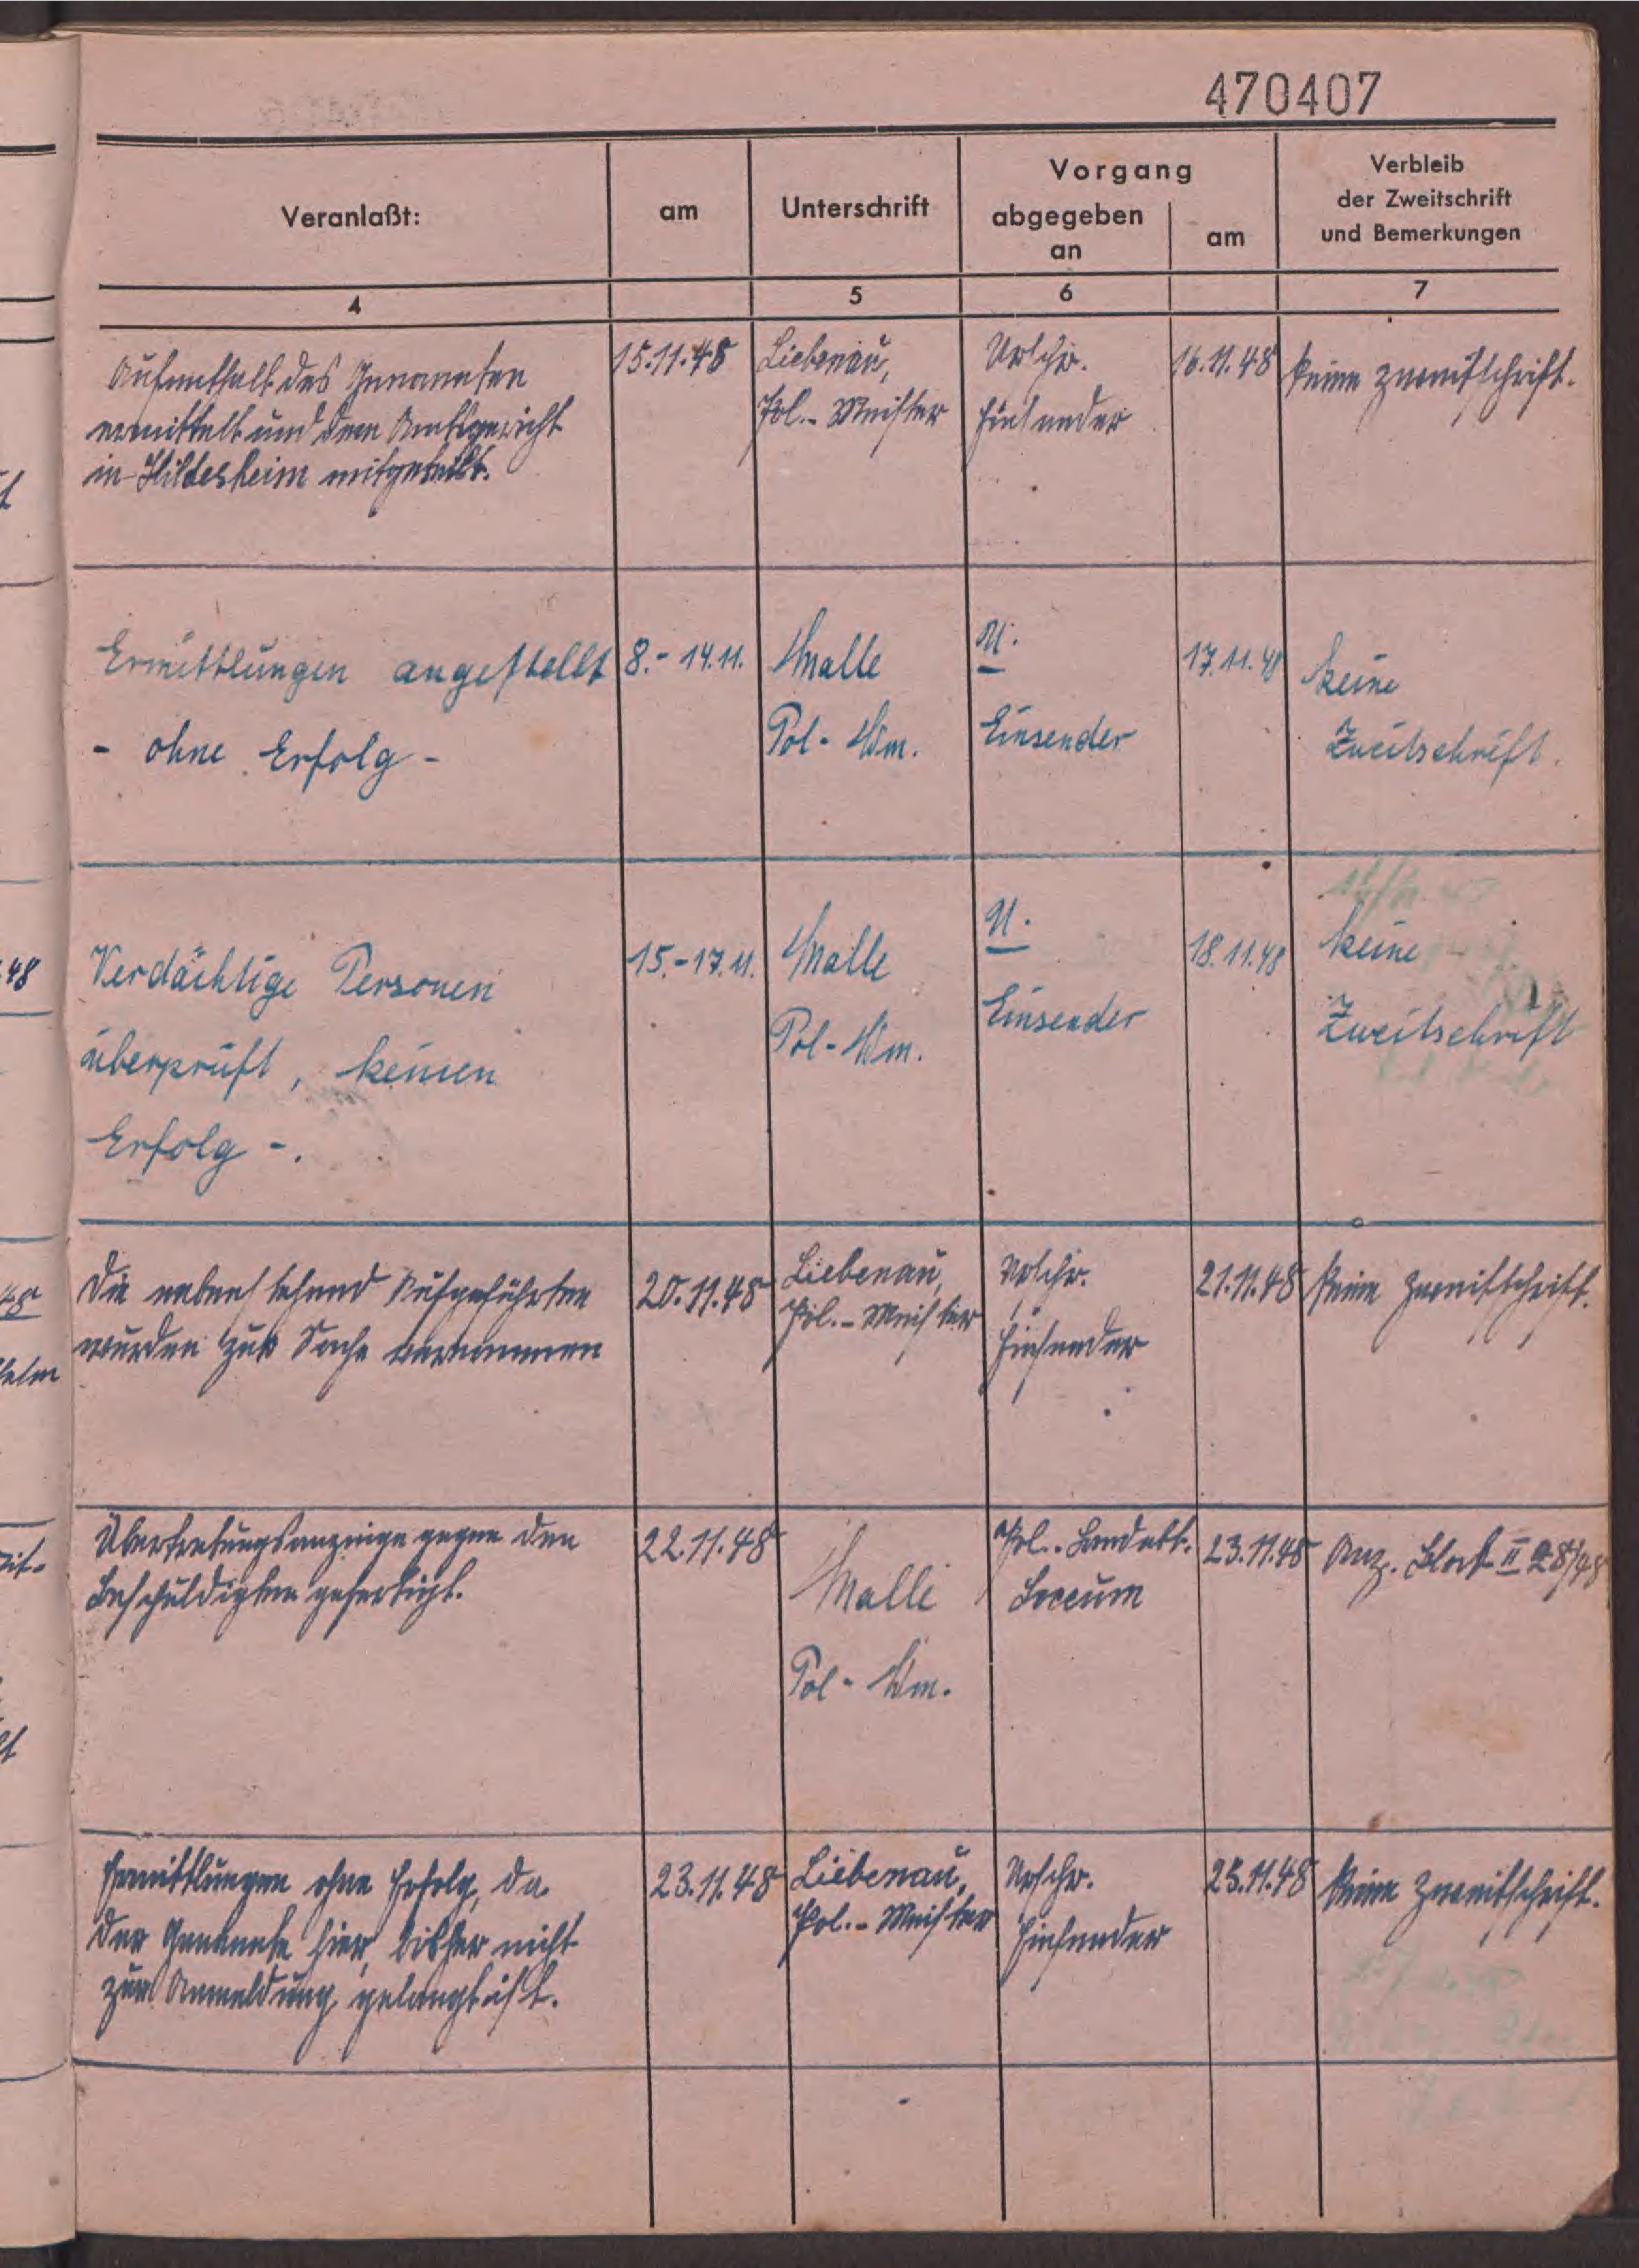 470407
Veranlaßt:
am
Unterschrift
Vorgang
abgegeben
an
am
Verbleib
der Zweitschrift
und Bemerkungen
4
5
6
7
Aufenthalt des Genannten
ermittelt und dem Amtsgericht
in Hildesheim mitgeteilt.
15.11.48
Liebenau,
Pol.-Meister
Urschr.
Einsender
16.11.48
keine Zweitschrift.
Ermittlungen angestellt
- ohne Erfolg -
8.- 14.11.
Malle
Pol- Wm.
U.
Einsender
17.11.48
keine
Zweitschrift.
Verdächtige Personen
überprüft, keinen
Erfolg -.
15.-17.11.
Malle
Pol- Wm.
U.
Einsender
18.11.48
keine
Zweitschrift
Die nebenstehend Aufgeführten
wurden zur Sache vernommen
20.11.48
Liebenau,
Pol.-Meister
Urschr.
Einsender
21.11.48
keine Zweitschrift.
Übertretungsanzeige gegen den
Beschuldigten gefertigt.
22.11.48
Malle
Pol- Wm.
Pol.. Landabt.
Loccum
23.11.48
Anz. Block II 28/48
Ermittlungen ohne Erfolg, da
der Genannte hier bisher nicht
zur Anmeldung gelangt ist.
23.11.48
Liebenau,
Pol.-Meister
Urschr.
Einsender
25.11.48
keine Zweitschrift.